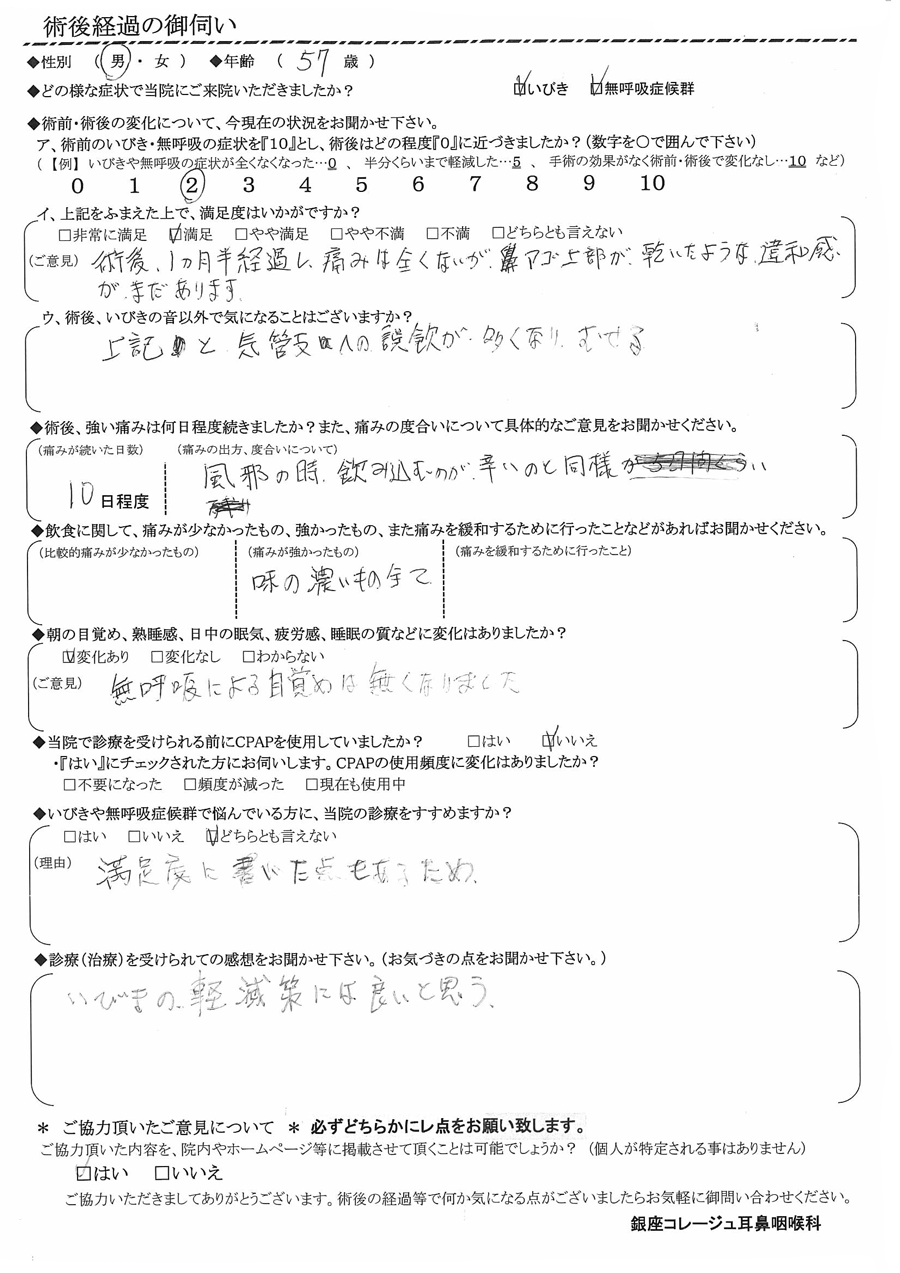 術後経過の御伺い
◆性別　（ 男 ・ 女 ）　◆年齢　（ 57 歳 ）
◆どの様な症状で当院にご来院いただきましたか？　☑いびき　☑無呼吸症候群
◆術前・術後の変化について、今現在の状況をお聞かせ下さい。
ア、術前のいびき・無呼吸の症状を『10』とし、術後はどの程度『0』に近づきましたか？（数字を〇で囲んで下さい）
（【例】いびきや無呼吸の症状が全くなくなった…0 、 半分くらいまで軽減した…5 、 手術の効果がなく術前・術後で変化なし…10 など）
0 1 2 3 4 5 6 7 8 9 10
イ、上記をふまえた上で、満足度はいかがですか？
□非常に満足　☑満足　□やや満足　□やや不満　□不満　□どちらとも言えない
（ご意見）術後、1ヵ月半経過し、痛みは全くないが、鼻アゴ上部が、乾いたような違和感
が、まだあります。
ウ、術後、いびきの音以外で気になることはございますか？
上記と気管支への誤飲が多くなり、むせる
◆術後、強い痛みは何日程度続きましたか？また、痛みの度合いについて具体的なご意見をお聞かせください。
（痛みが続いた日数）　（痛みの出方、度合いについて）
10日程度　風邪の時、飲み込むのが、辛いのと同様
◆飲食に関して、痛みが少なかったもの、強かったもの、また痛みを緩和するために行ったことなどがあればお聞かせください。
（比較的痛みが少なかったもの）　（痛みが強かったもの）　（痛みを緩和するために行ったこと）
味の濃いもの全て
◆朝の目覚め、熟睡感、日中の眠気、疲労感、睡眠の質などに変化はありましたか？
☑変化あり　□変化なし　□わからない
（ご意見）　無呼吸による目覚めは無くなりました
◆当院で診療を受けられる前にCPAPを使用していましたか？　□はい　☑いいえ
・『はい』にチェックされた方にお伺いします。CPAPの使用頻度に変化はありましたか？
□不要になった　□頻度が減った　□現在も使用中
◆いびきや無呼吸症候群で悩んでいる方に、当院の診療をすすめますか？
□はい　□いいえ　☑どちらとも言えない
（理由）　満足度に書いた点もあるため、
◆診療（治療）を受けられての感想をお聞かせ下さい。（お気づきの点をお聞かせ下さい。）
いびきの軽減策には良いと思う、
＊ ご協力頂いたご意見について ＊ 必ずどちらかにレ点をお願い致します。
ご協力頂いた内容を、院内やホームページ等に掲載させて頂くことは可能でしょうか？（個人が特定される事はありません）
☑はい　□いいえ
ご協力いただきましてありがとうございます。術後の経過等で何か気になる点がございましたらお気軽に御問い合わせください。
銀座コレージュ耳鼻咽喉科